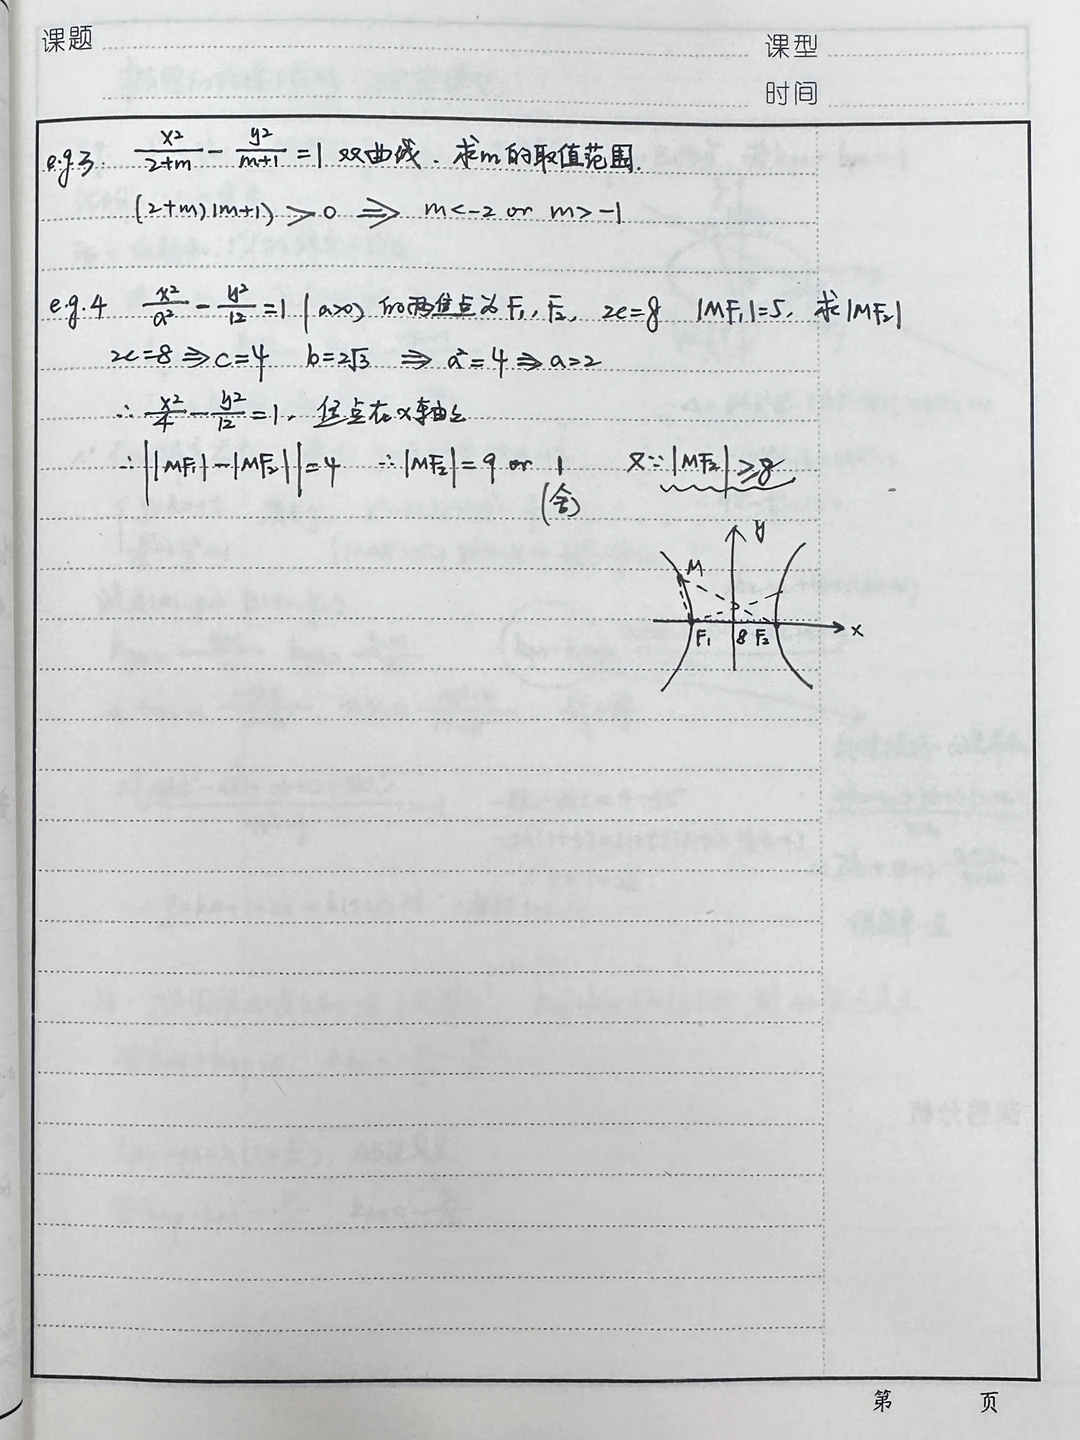 课题
课型
时间
e.g.3. x²/(2+m) - y²/(m+1) = 1 双曲线. 求m的取值范围.
(2+m)(m+1) > 0 ⇒ m<-2 or m>-1
e.g.4 x²/a² - y²/12 = 1 (a>0) 的两焦点为 F₁, F₂, 2c=8 |MF₁|=5. 求|MF₂|
2c=8 ⇒ c=4 b=2√3 ⇒ a²=4 ⇒ a=2
∴ x²/4 - y²/12 = 1, 焦点在x轴上
∴ ||MF₁|-|MF₂||=4 ∴|MF₂|=9 or 1 又∵|MF₂|≥8
(舍)
y
M
x
F₁ 8 F₂
第 页